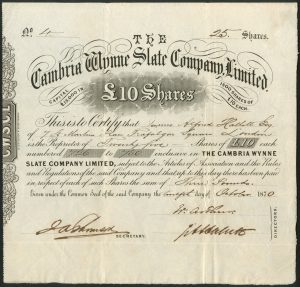 No. 4 25 Shares.
THE
Cambria Wynne Slate Company, Limited
CAPITAL £16,000, IN
1600 SHARES OF £10 EACH.
£10 Shares
This is to Certify that James Alfred Hallett Esq
of 7 St Martins Place Trafalgar Square London
is the Proprietor of Twenty five Shares of £10 each
numbered to inclusive in the CAMBRIA WYNNE
SLATE COMPANY LIMITED, subject to the Articles of Association and the Rules
and Regulations of the said Company and that up to this day there has been paid
in respect of each of such Shares the sum of Three Pounds.
Given under the Common Seal of the said Company the day of October 1870
SECRETARY.
DIRECTORS.
CWSCL